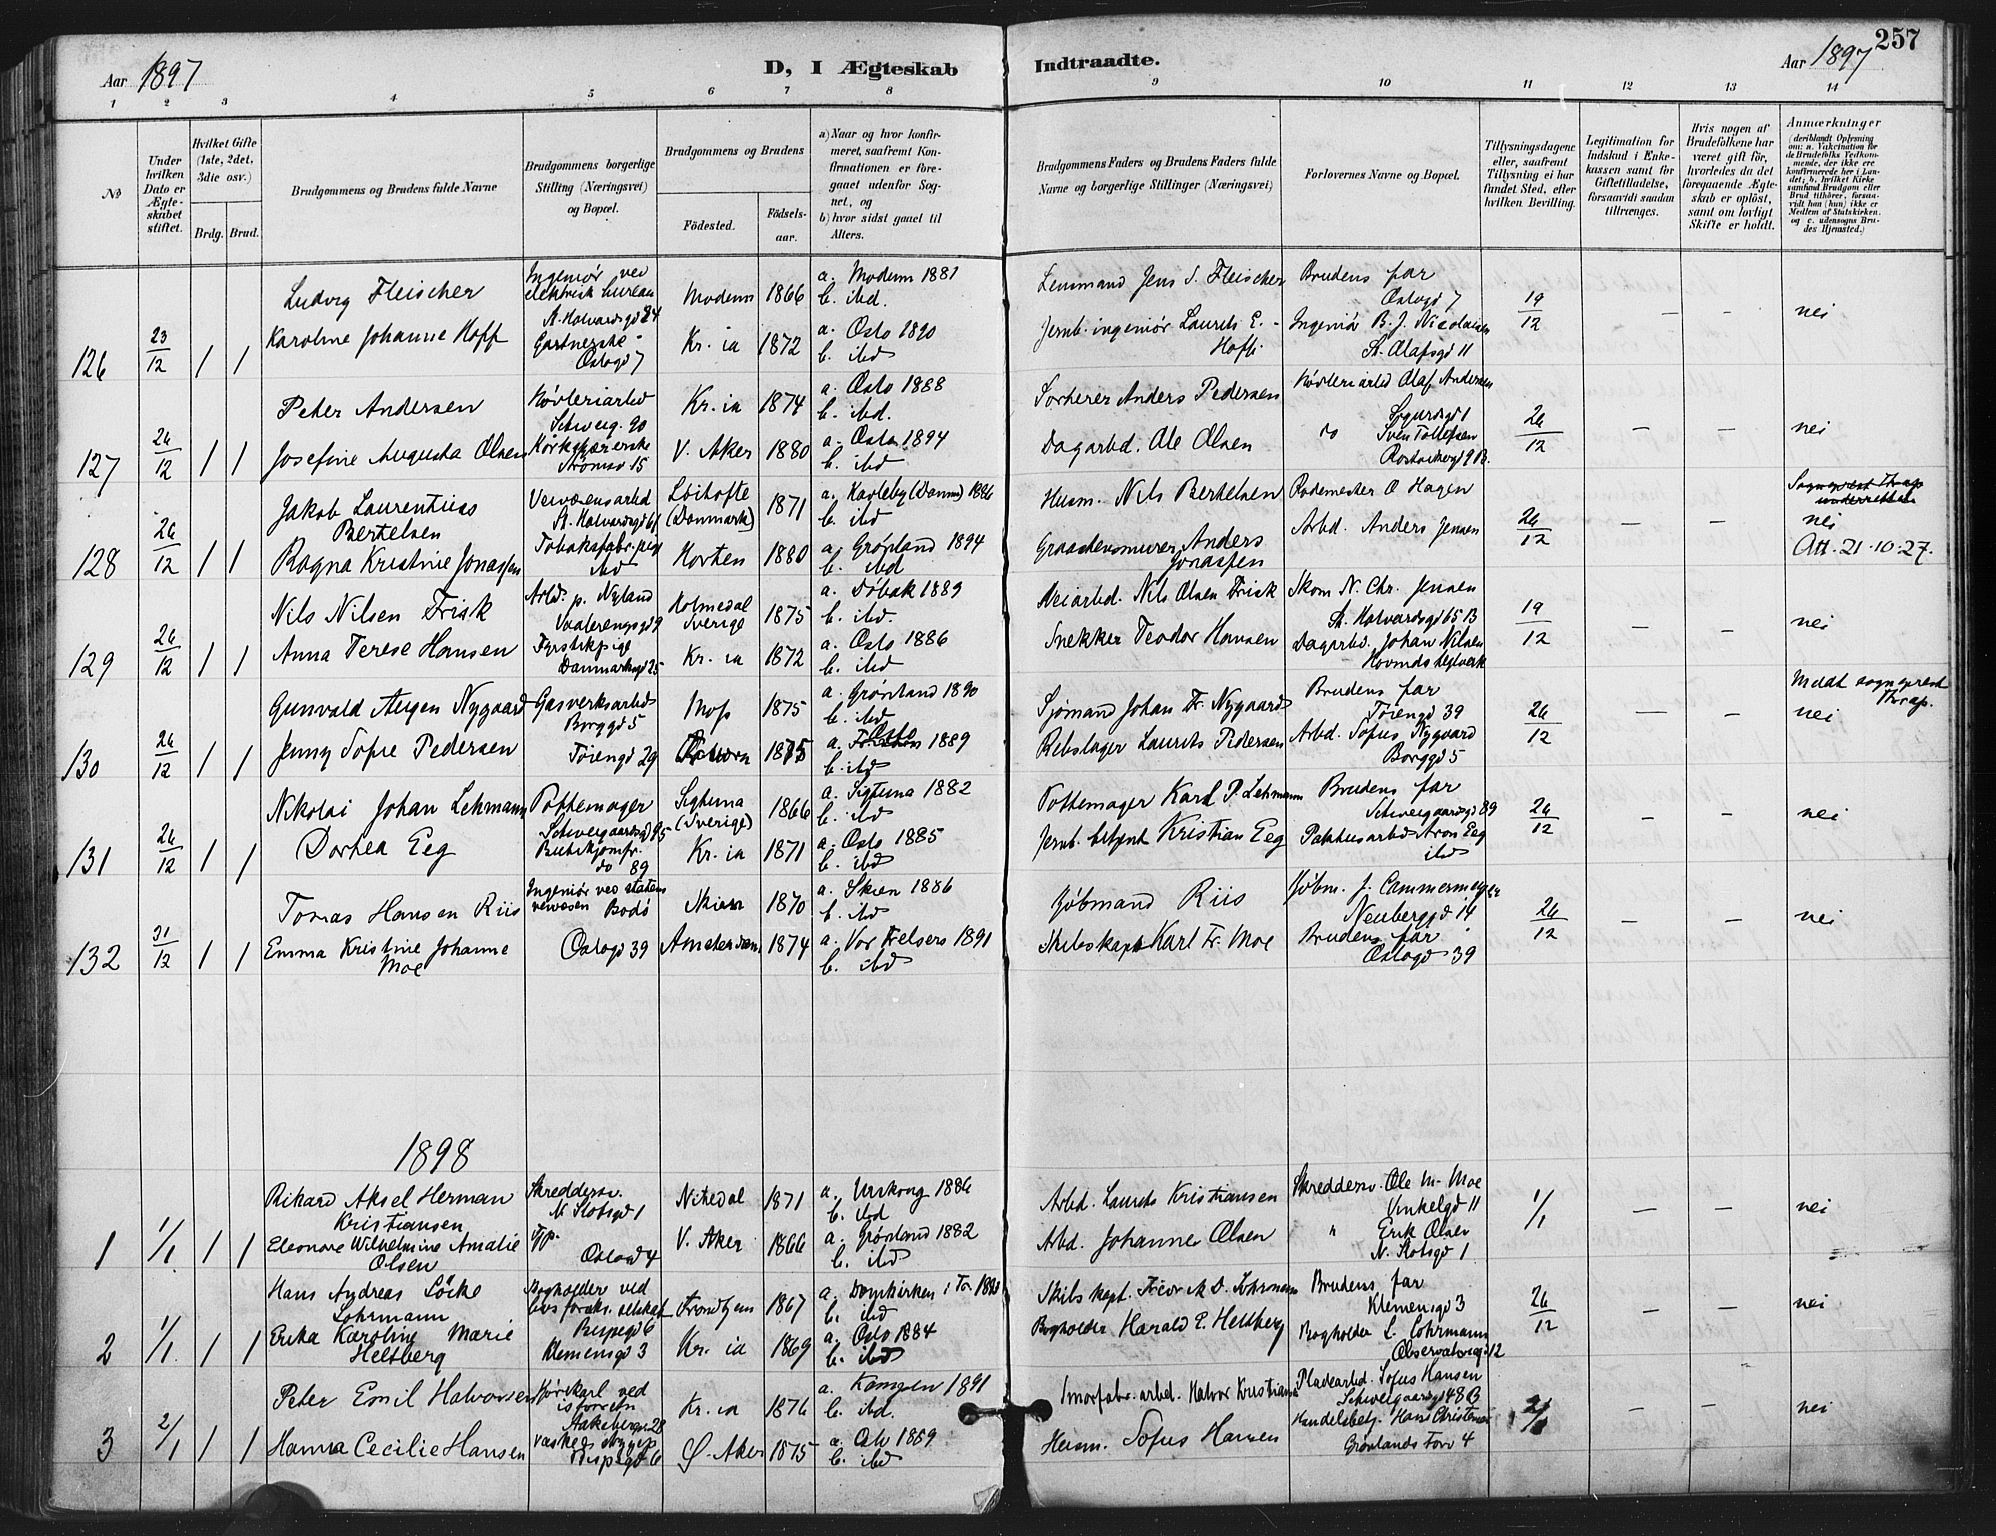 257
Aar 1897
D, I Ægteskab Indtraadte.
Aar 1897
1 2 3 4 5 6 7 8 9 10 11 12 13 14
No
Under hvilken Dato er Ægteskabet stiftet.
Hvilket Gifte (1ste, 2det, 3die osv.)
Brdg. Brud.
Brudgommens og Brudens fulde Navne
Brudgommens borgerlige Stilling (Næringsvei) og Bopæl.
Brudgommens og Brudens
Födested.
Födsels-aar.
a) Naar og hvor konfirmeret, saafremt Konfirmationen er foregaaet udenfor Sognet, og
b) hvor sidst gaaet til Alters.
Brudgommens Faders og Brudens Faders fulde Navne og borgerlige Stillinger (Næringsvei)
Forlovernes Navne og Bopæl.
Tillysningsdagene eller, saafremt Tillysning ei har fundet Sted, efter hvilken Bevilling.
Legitimation for Indskud i Enkekassen samt for Giftetilladelse, forsaavidt saadan tiltrænges.
Hvis nogen af Brudefolkene har været gift för, hvorledes da det foregaaende Ægteskab er oplöst, samt om lovligt Skifte er holdt.
Anmærkninger
(deriblandt Oplysning om: a. Vakcination for de Brudefolks Vedkommende, der ikke ere konfirmerede her i Landet; b. hvilket Kirkesamfund Brudgom eller Brud tilhörer, forsaavidt han (hun) ikke er Medlem af Statskirken. og c. udensogns Brudes Hjemsted.)
126 23/12 1 1
Ludvig Fleischer Ingeniør ved elektrisk bureau St. Halvardsgd 24 Modum 1866 a. Modum 1881 b. ibd. Lensmand Jens S. Fleischer Brudens far Oslogd 7 19/12 — — nei
Karoline Johanne Hoff Oslogd 7 Kr.ia 1872 a. Oslo 1890 b. ibd Jernb. ingeniør Laurits E. Hoff Ingeniør B. J. Nicolaisen St. Olafsgd 11
127 26/12 1 1
Peter Andersen Høvleriarbd Schweig. 90 Kr.ia 1874 a. Oslo 1888 b. ibd. Anders Pedersen Høvleriarbd Olaf Andersen Sigurdsgd 1 26/12 — — nei
Josefine Augusta Olsen Strømsv 15 V. Aker 1880 a. Oslo 1894 b. ibd Dagarbd. Ole Olsen do Sven Tollefsen
128 26/12 1 1
Jakob Laurentius Bertelsen Veivæsensarbd St. Halvardsgd 61 (Danmark) 1871 a. (Danm) 1886 b. ibd Husm. Nils Bertelsen Rodemester O Hagen 26/12 — — Sogneprest Thrap underrettet nei
Ragna Kristine Jonassen Tobaksfabr. pige ibd Horten 1880 a. Grønland 1894 b. ibd Graastensmurer Anders Jonassen Arbd. Anders Jensen Att. 21.10.27.
129 26/12 1 1
Nils Nilsen Frisk Arbd. p. Nyland Vaalerengsgd 9 Holmedal Sverige 1875 a. Døbak 1889 b. ibd. Veiarbd. Nils Olsen Frisk Skom N. Chr. Jensen St. Halvardsgd 65 B 19/12 — — nei
Anna Terese Hansen Fyrstikpige Danmarksgd 25 Kr.ia 1872 a. Oslo 1886 b. ibd Snekker Teodor Hansen Dagarbd. Johan Nilsen Hovinds teglverk
130 26/12 1 1
Gunvald Augen Nygaard Gasverksarbd Borggd 5 Moss 1875 a. Grønland 1890 b. ibd Sjømand Johan Fr. Nygaard Brudens far Tøiengd 39 26/12 — — Meldt sogneprest Thrap. nei
Jenny Sofie Pedersen Tøiengd 29 1875 a. Oslo 1889 b. ibd Rebslager Laurits Pedersen Arbd. Sofus Nygaard Borggd 5
131 26/12 1 1
Nikolai Johan Lehmann Pottemager Schweigaardsgd 95 Sigtuna (Sverige) 1866 a. Sigtuna 1882 b. ibd Pottemager Karl P. Lehmann Brudens far Schweigaardsgd 89 26/12 — — nei
Dortea Eeg Butikjomfr. do 89 Kr.ia 1871 a. Oslo 1885 b. ibd Jernb. betjent Kristian Eeg Pakhusarbd Aron Eeg ibd
132 31/12 1 1
Tomas Hansen Riis Ingeniør ved statens veivæsen Bodø Skien 1870 a. Skien 1886 b. ibd Kjøbmand Riis Kjøbm. J. Cammermeyer Neuberggd 14 26/12 — — nei
Emma Kristine Johanne Moe Oslogd 39 Amsterdam 1874 a. Vor Frelsers 1891 b. ibd Skibskapt Karl Fr. Moe Brudens far Oslogd 39
1898
1 1/1 1 1
Rikard Aksel Herman Kristiansen Skreddersv. N. Slotsgd 1 Nitedal 1871 a. Urskoug 1886 b. ibd Arbd. Laurits Kristiansen Skreddersv. Ole M. Moe Vinkelgd 11 1/1 — — nei
Eleonore Wilhelmine Amalie Olsen Oslogd 4 V. Aker 1866 a. Grønland 1882 b. ibd Arbd. Johannes Olsen " Erik Olsen N. Slotsgd 1
2 1/1 1 1
Hans Andreas Löcke Lohrmann Bogholder ved livsforsikr. selskab Bispegd 6 Trondhjem 1867 a. Domkirken i Tr. 1883 b. ibd Skibskapt. Fredr. M. D. Lohrmann Brudens far Klemensgd 3 26/12 — — nei
Erika Karoline Marie Heltberg Klemensgd 3 Kr.ia 1869 a. Oslo 1884 b. ibd Bogholder Harald E. Heltberg Bogholder L. Lohrmann Observatoriegd 12
3 2/1 1 1
Peter Emil Halvorsen Kjørekarl ved isforretn Aakebergv 28 Kr.ia 1876 a. Kampen 1891 b. ibd. Smørfabr. arbd. Halvor Kristiansen Pladearbd. Sofus Hansen Schweigaardsgd 48 B 2/1 — — nei
Hanna Cecilie Hansen Bispegd 6 Ø. Aker 1875 a. Oslo 1889 b. ibd Husm. Sofus Hansen Handelsbetj. Hans Christensen Grønlands Torv 4